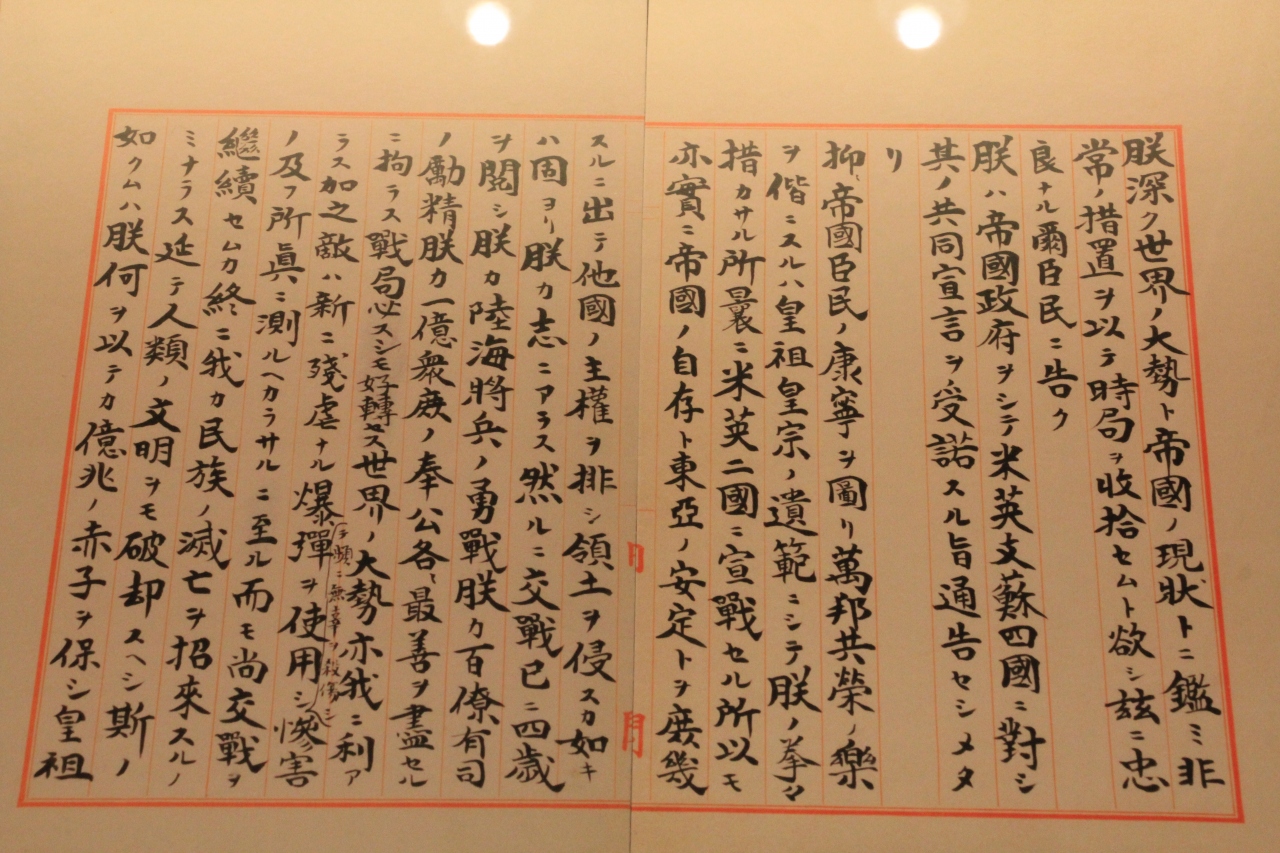 朕深ク世界ノ大勢ト帝國ノ現狀トニ鑑ミ非
常ノ措置ヲ以テ時局ヲ收拾セムト欲シ茲ニ忠
良ナル爾臣民ニ告ク
朕ハ帝國政府ヲシテ米英支蘇四國ニ對シ
其ノ共同宣言ヲ受諾スル旨通告セシメタ
リ
抑〻帝國臣民ノ康寧ヲ圖リ萬邦共榮ノ樂
ヲ偕ニスルハ皇祖皇宗ノ遺範ニシテ朕ノ拳〻
措カサル所曩ニ米英二國ニ宣戰セル所以モ
亦實ニ帝國ノ自存ト東亞ノ安定トヲ庶幾
スルニ出テ他國ノ主權ヲ排シ領土ヲ侵スカ如キ
ハ固ヨリ朕カ志ニアラス然ルニ交戰已ニ四歲
ヲ閱シ朕カ陸海將兵ノ勇戰朕カ百僚有司
ノ勵精朕カ一億衆庶ノ奉公各〻最善ヲ盡セル
ニ拘ラス戰局必スシモ好轉セス世界ノ大勢亦我ニ利ア
ラス加之敵ハ新ニ殘虐ナル爆彈ヲ使用シテ頻ニ無辜ヲ殺傷シ慘害
ノ及フ所眞ニ測ルヘカラサルニ至ル而モ尚交戰ヲ
繼續セムカ終ニ我カ民族ノ滅亡ヲ招來スルノ
ミナラス延テ人類ノ文明ヲモ破却スヘシ斯ノ
如クムハ朕何ヲ以テカ億兆ノ赤子ヲ保シ皇祖
月
月